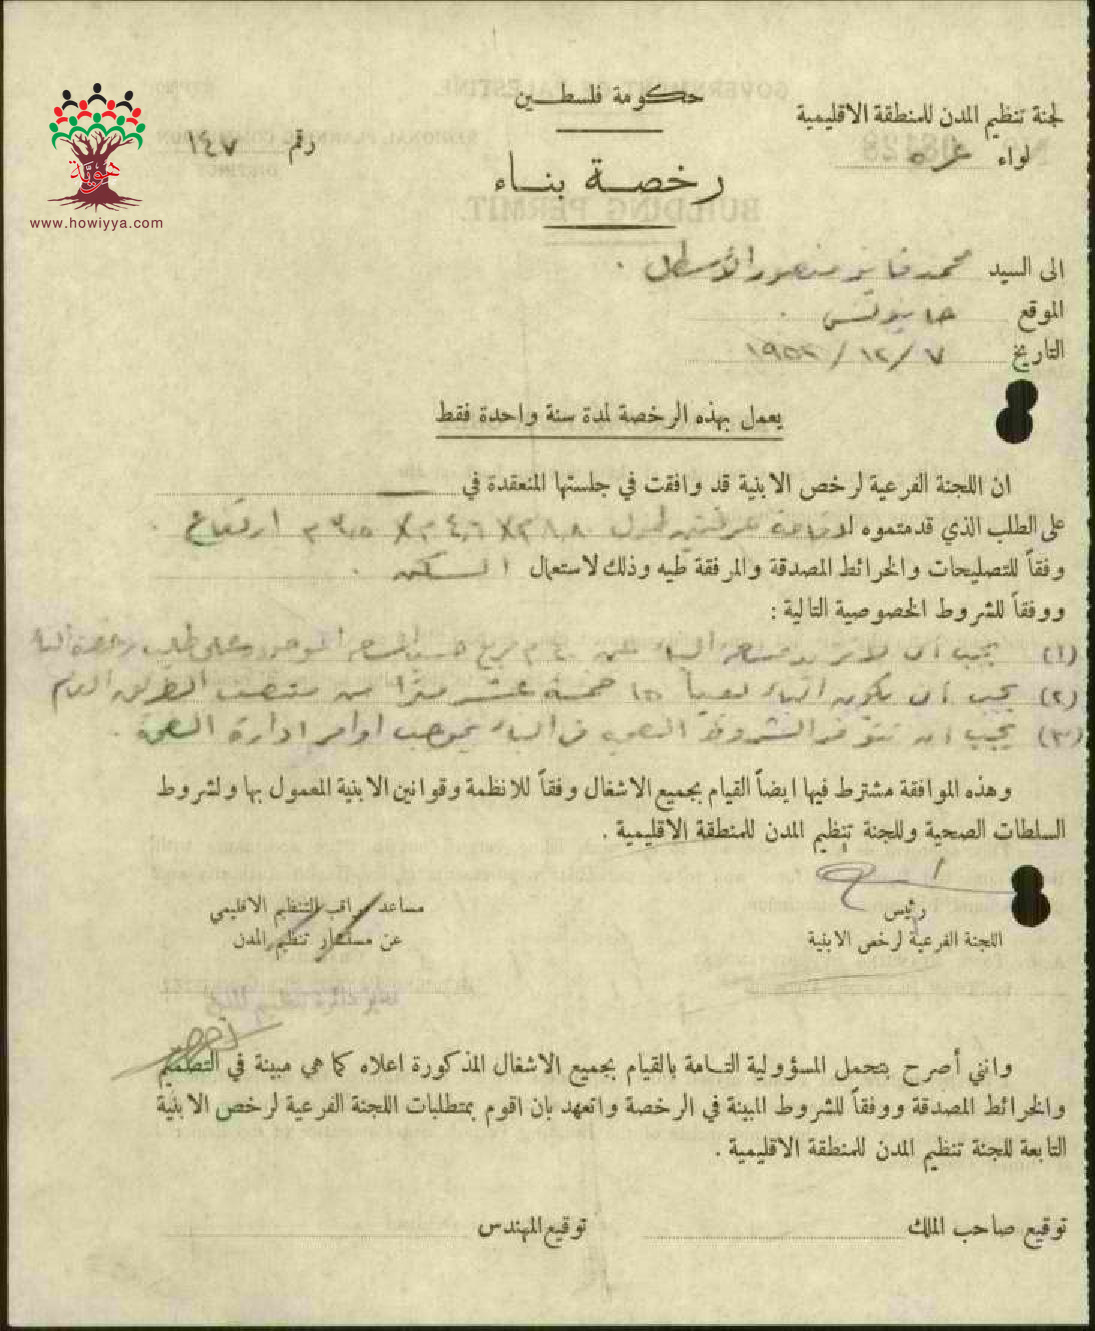 حكومة فلسطين
لجنة تنظيم المدن للمنطقة الاقليمية
لواء غزه
رقم ١٤٧
هوية
www.howiyya.com
رخصة بناء
الى السيد محمد فايز منصور الأسطل .
الموقع خانيونس .
التاريخ ٧ / ١٢ / ١٩٥٢
يعمل بهذه الرخصة لمدة سنة واحدة فقط
ان اللجنة الفرعية لرخص الابنية قد وافقت في جلستها المنعقدة في
على الطلب الذي قدمتموه ارتفاع .
وفقاً للتصليحات والخرائط المصدقة والمرفقة طيه وذلك لاستعمال السكن .
ووفقاً للشروط الخصوصية التالية :
(١) يجب ان لا تزيد مساحة البناء عن
(٢) يجب ان يكون البناء بعيداً ١٥ خمسة عشر متراً من منتصف الطريق العام
(٣) يجب ان تتوفر الشروط الصحية في البناء بموجب اوامر ادارة الصحة .
وهذه الموافقة مشترط فيها ايضاً القيام بجميع الاشغال وفقاً للانظمة وقوانين الابنية المعمول بها ولشروط
السلطات الصحية وللجنة تنظيم المدن للمنطقة الاقليمية .
رئيس
اللجنة الفرعية لرخص الابنية
مساعد مراقب التنظيم الاقليمي
عن مستشار تنظيم المدن
وانني أصرح بتحمل المسؤولية التامة بالقيام بجميع الاشغال المذكورة اعلاه كما هي مبينة في التصميم
والخرائط المصدقة ووفقاً للشروط المبينة في الرخصة واتعهد بان اقوم بمتطلبات اللجنة الفرعية لرخص الابنية
التابعة للجنة تنظيم المدن للمنطقة الاقليمية .
توقيع صاحب الملك
توقيع المهندس